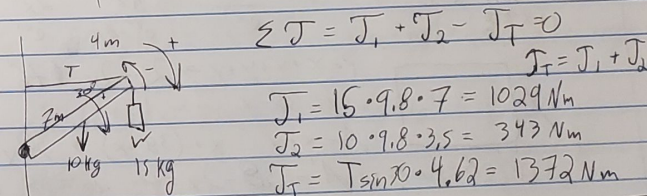 4m
+
T
-
30
7m
10 kg
W
15 kg
Στ = τ₁ + τ₂ - τ_T = 0
τ_T = τ₁ + τ₂
τ₁ = 15 · 9,8 · 7 = 1029 Nm
τ₂ = 10 · 9,8 · 3,5 = 343 Nm
τ_T = T sin 30 · 4,62 = 1372 Nm